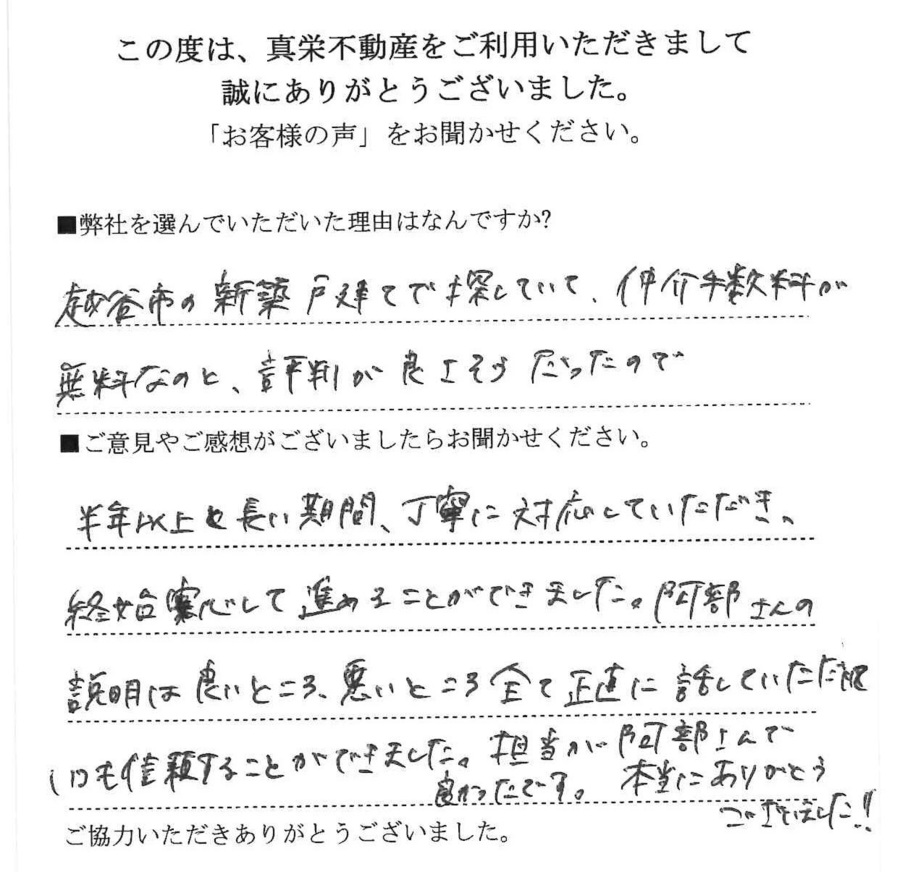 この度は、真栄不動産をご利用いただきまして
誠にありがとうございました。
「お客様の声」をお聞かせください。
■弊社を選んでいただいた理由はなんですか?
越谷市の新築戸建てで探していて、仲介手数料が
無料なのと、評判が良さそうだったので
■ご意見やご感想がございましたらお聞かせください。
半年以上と長い期間、丁寧に対応していただき、
終始安心して進めることができました。阿部さんの
説明は良いところ、悪いところ全て正直に話していただき
いつも信頼することができました。担当が阿部さんで
良かったです。本当にありがとう
ございました!!
ご協力いただきありがとうございました。